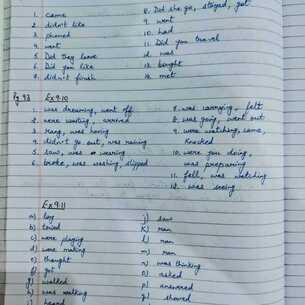 1. came
2. didn't like
3. phoned
4. went
5. Did they leave
6. Did you like
7. didn't finish
8. Did she go, stayed, got
9. went
10. had
11. Did you travel
12. was
13. bought
14. met
Pg 93 Ex 9.10
1. was dreaming, went off
2. were waiting, arrived
3. rang, was having
4. didn't go out, was raining
5. saw, was wearing
6. broke, was washing, slipped
7. was carrying, fell
8. was going, went out
9. were watching, came,
knocked
10. were you doing,
was preparing
11. fell, was watching
12. was seeing
Ex 9.11
a) lay
b) tried
c) were playing
d) were making
e) thought
f) got
g) walked
h) was walking
i) heard
j) saw
k) ran
l) ran
m) ran
n) was thinking
o) asked
p) answered
q) showed